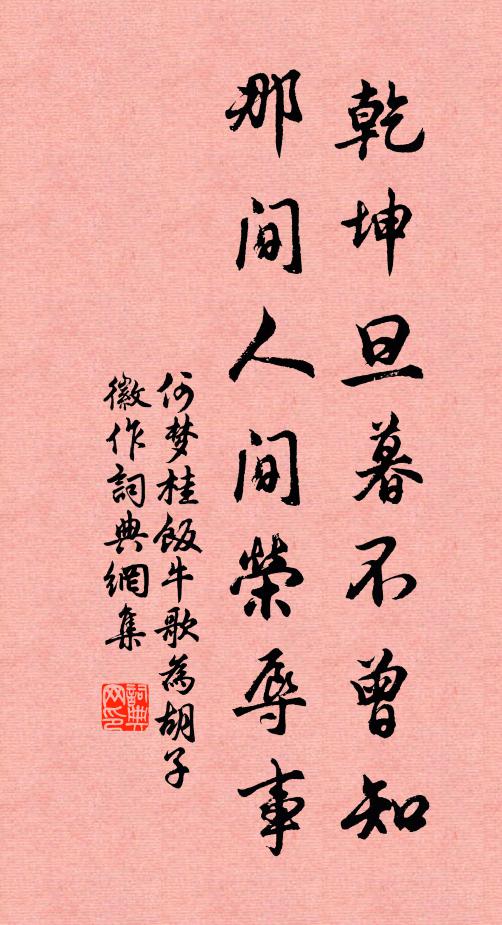 乾坤旦暮不曾知
那间人间荣辱事
何梦桂飯牛歌為胡子
徽作詞典網集
詞典网印